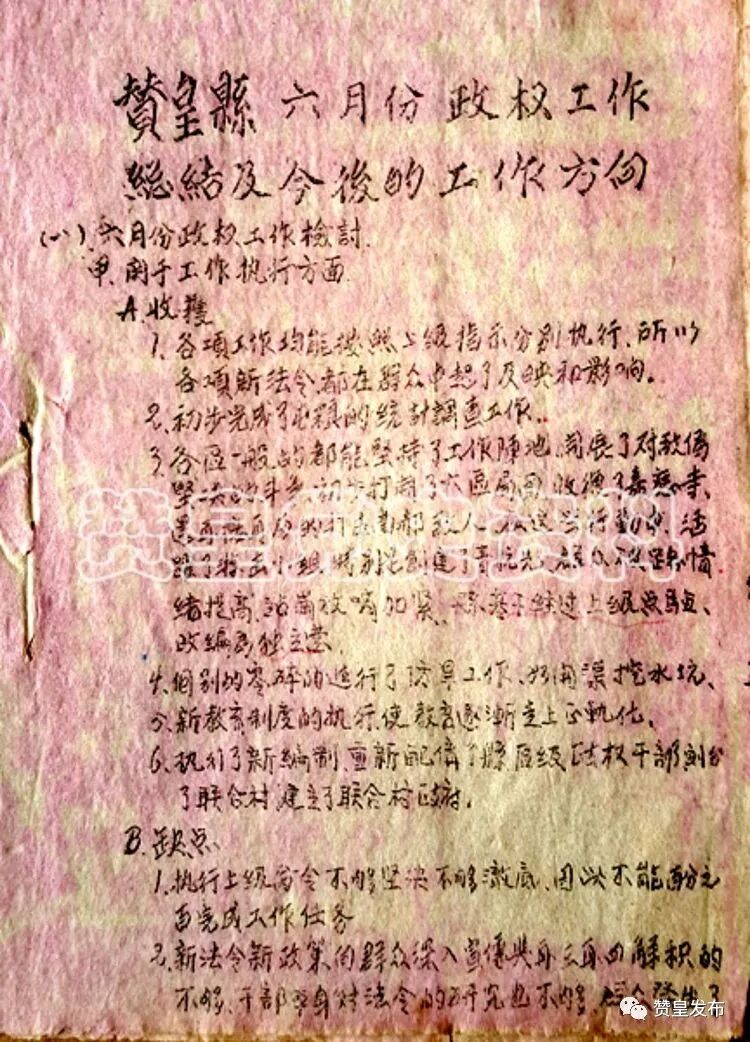 贊皇縣六月份政权工作
総結及今後的工作方向
(一)、六月份政权工作檢討.
甲、関于工作执行方面
A、收獲
1、各項工作均能按照上級指示分别执行、所以
各項新法令、都在群众中起了反映和影响。
2、初步完成了必須的統計調查工作..
3、各區一般的都能堅持了工作陣地、開展了对敌偽
堅决的斗争、初步打開了六區局面、收復了
敌人
了 小組、特别是創建了青抗先、群众 情
緒提高、站崗放哨加紧、 経过上級
改編為独立営.
4、個别的零碎的進行了防旱工作、如開渠挖水坑、
5、新教育制度的执行、使教育逐漸走上正軌化、
6、执行了新編制、重新配俻了縣區級政权干部划分
了联合村、建立了联合村政府.
B、缺点
1、执行上級命令不够坚决不够澈底、因此不能百分之
百完成工作任务
2、新法令新政策向群众深入宣傳 解积的
不够、干部本身对法令的研究也不够、群众發生了
赞皇发布